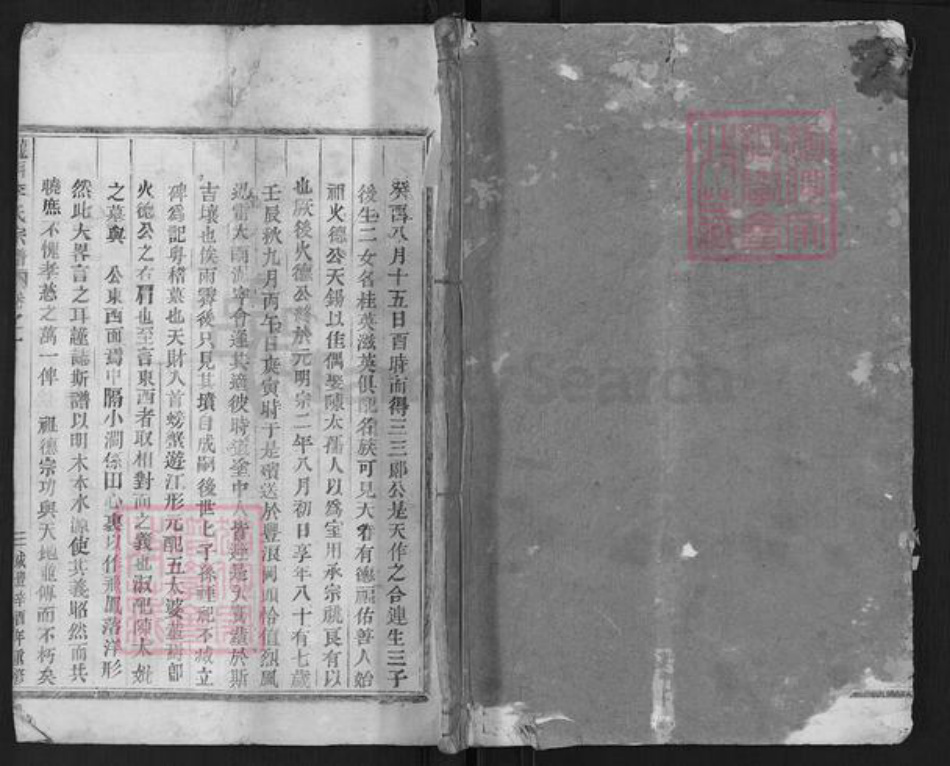 癸酉八月十五日酉時而得三三郎公是天作之合連生三子
後生二女名桂英滋英俱配名族可見天眷有德福佑善人始
祖火德公天錫以佳偶娶陳太孺人以為室用承宗祧良有以
也厥後火德公終於元明宗二年八月初日享年八十有七歲
壬辰秋九月丙午日庚寅時于是殯送於豐浪岡頭恰值烈風
迅雷大雨滂 會逢其適彼時 塗中人皆 是 於斯
吉壤也俟雨霽後只見其墳自成嗣後世匕子孫 祀不 立
碑為記粵稽墓也天財入首螃蟹遊江形元配五太婆 即
火德公之右肩也至言東西者取相對面之義也淑配陳太妣
之墓與 公東西面焉中隔小澗係田心裏以作飛鳳落洋形
然此大畧言之耳謹誌斯譜以明木本水源使其義昭然而共
曉庶不愧孝慈之萬一俾 祖德宗功與天地並傳而不朽矣
李氏宗譜 卷之一
咸豐辛酉年重修